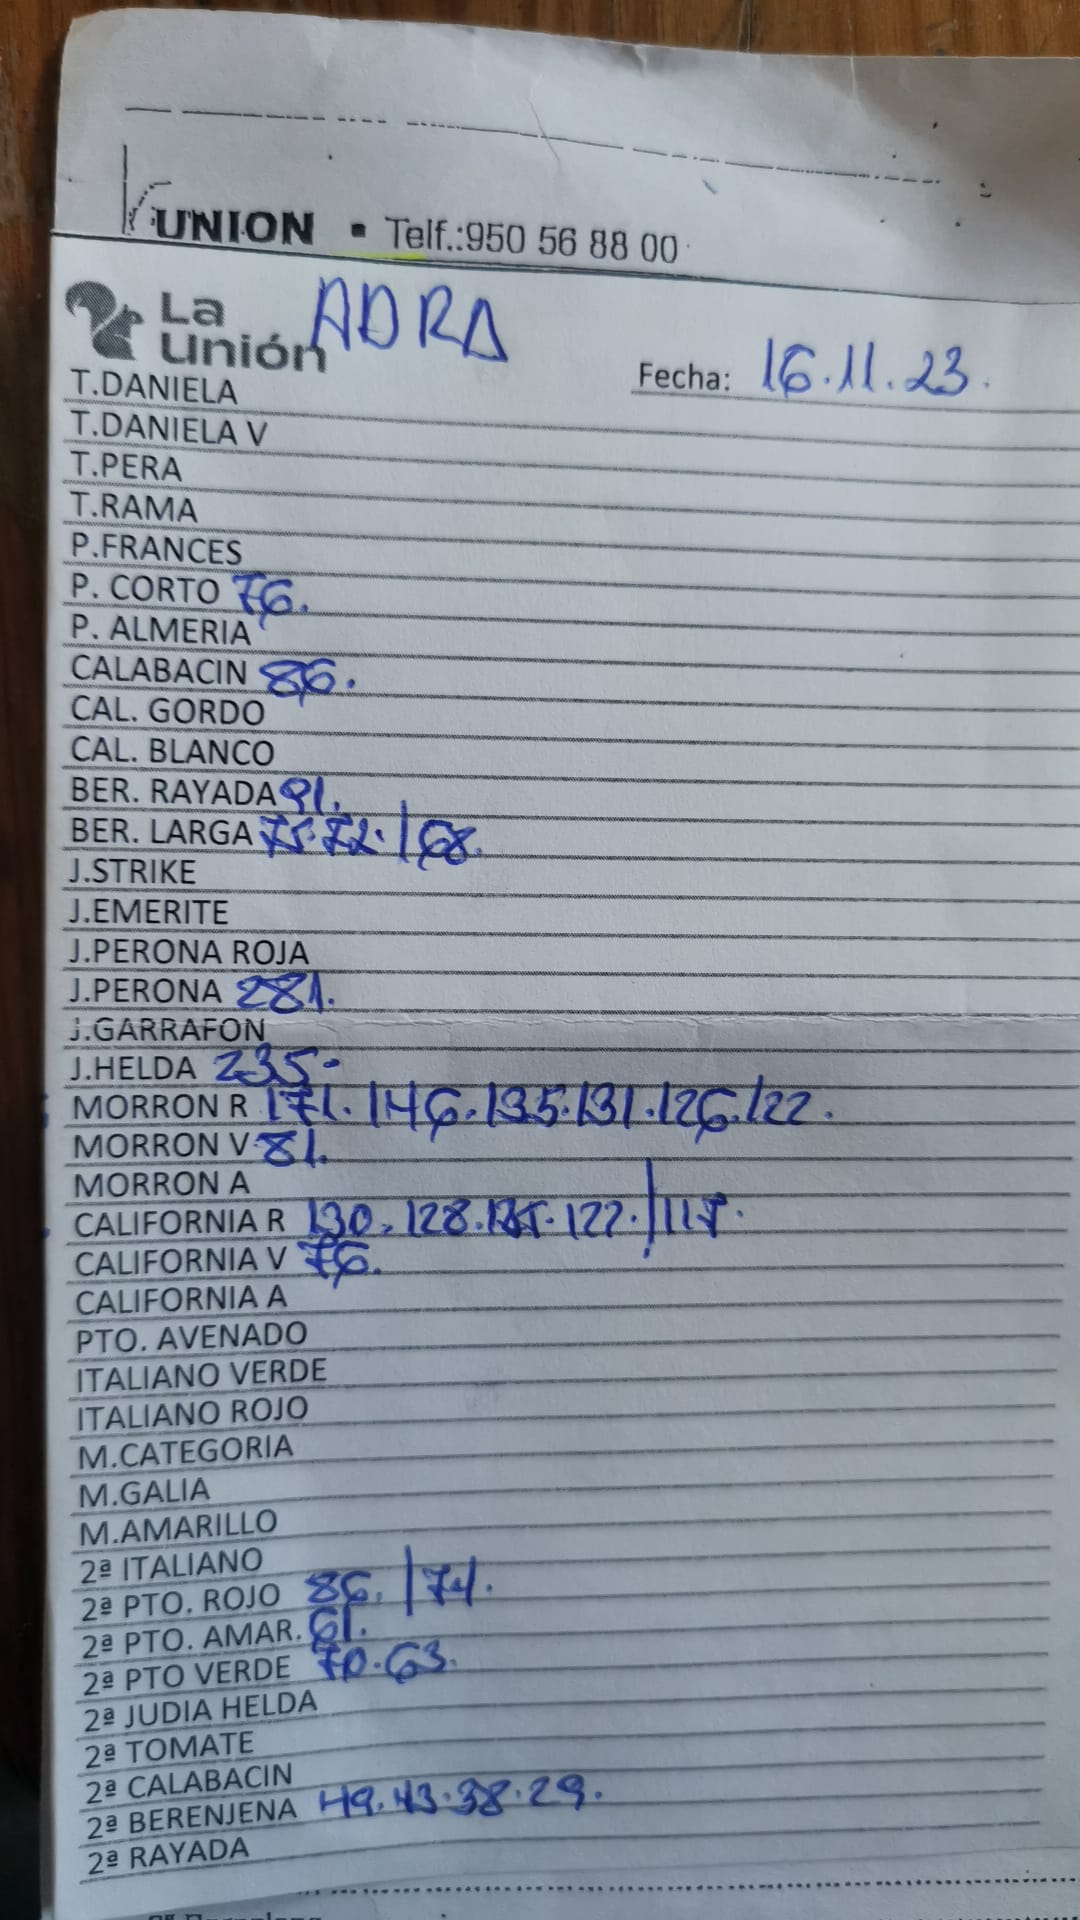 UNION ▪ Telf.:950 56 88 00
La Unión ADRA
Fecha: 16.11.23.
T.DANIELA
T.DANIELA V
T.PERA
T.RAMA
P.FRANCES
P. CORTO 76.
P. ALMERIA
CALABACIN 86.
CAL. GORDO
CAL. BLANCO
BER. RAYADA 91.
BER. LARGA 75.72./68.
J.STRIKE
J.EMERITE
J.PERONA ROJA
J.PERONA 281.
J.GARRAFON
J.HELDA 235-
MORRON R 171.146.135.131.126.122.
MORRON V 81.
MORRON A
CALIFORNIA R 130.128.125.122./117.
CALIFORNIA V 76.
CALIFORNIA A
PTO. AVENADO
ITALIANO VERDE
ITALIANO ROJO
M.CATEGORIA
M.GALIA
M.AMARILLO
2ª ITALIANO
2ª PTO. ROJO 86./74.
2ª PTO. AMAR. 61.
2ª PTO VERDE 70.63.
2ª JUDIA HELDA
2ª TOMATE
2ª CALABACIN
2ª BERENJENA 49.43.38.29.
2ª RAYADA